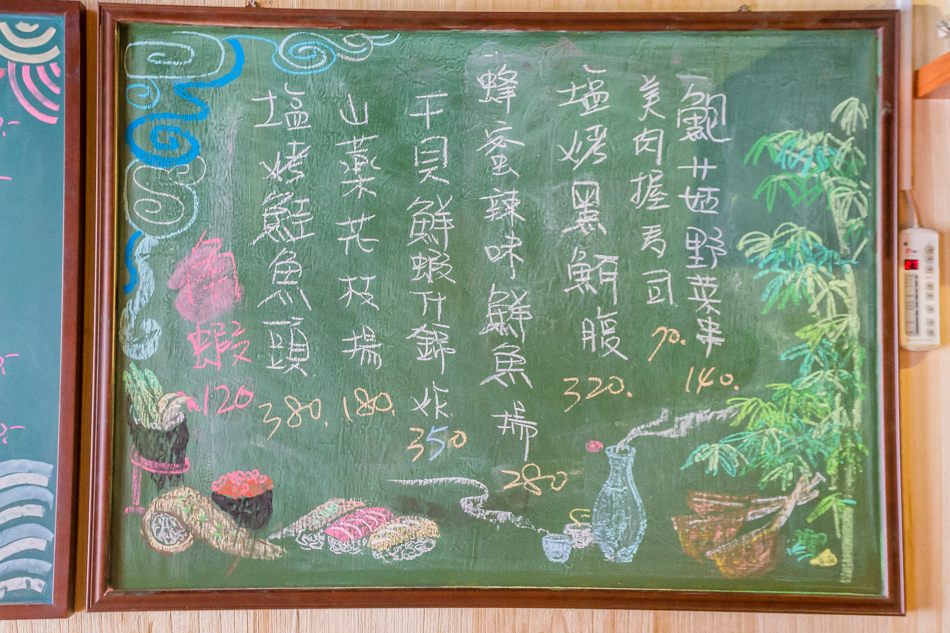 鮑菇野菜串 140.
美肉握寿司 70.
塩烤黑鮪腹 320.
蜂蜜辣味鮮魚揚 280
干貝鮮蝦什錦炸 350
山藥花枝揚 180.
塩烤鮭魚頭 380.
蝦 120